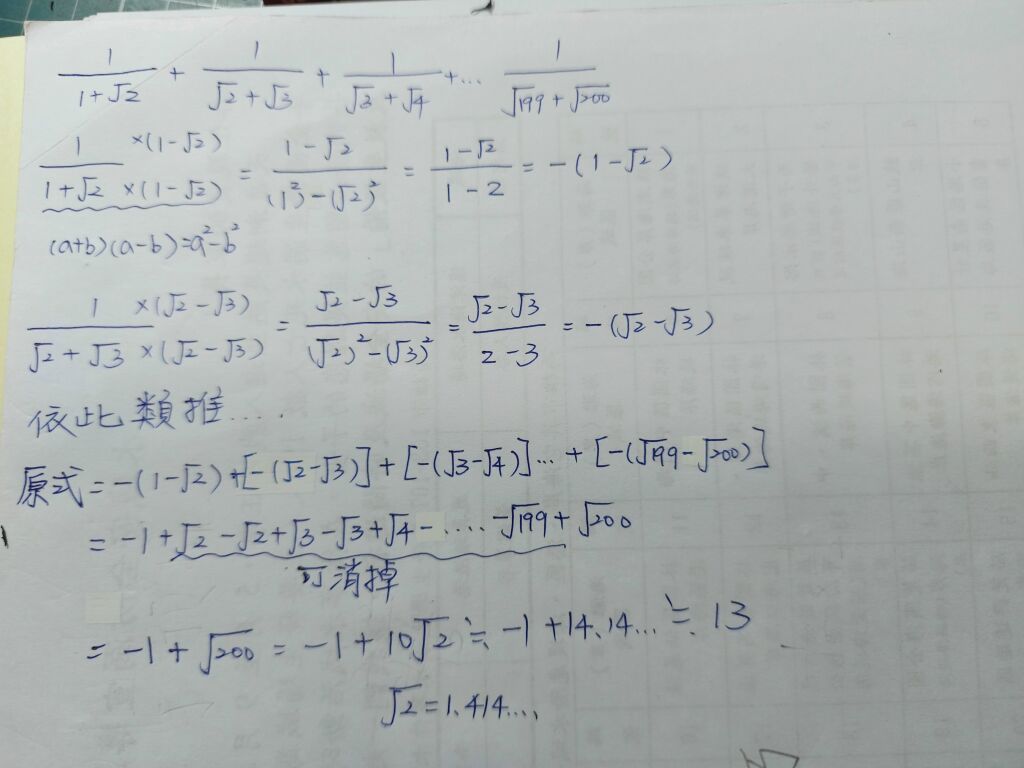 1/(1+√2) + 1/(√2+√3) + 1/(√3+√4) +... 1/(√199+√200)
1×(1-√2)/(1+√2×(1-√2)) = (1-√2)/((1²)-(√2)²) = (1-√2)/(1-2) = -(1-√2)
(a+b)(a-b)=a²-b²
1×(√2-√3)/(√2+√3×(√2-√3)) = (√2-√3)/((√2)²-(√3)²) = (√2-√3)/(2-3) = -(√2-√3)
依此類推....
原式=-(1-√2)+[-(√2-√3)]+[-(√3-√4)]...+[-(√199-√200)]
=-1+√2-√2+√3-√3+√4-....-√199+√200
可消掉
=-1+√200=-1+10√2≒-1+14.14...≒13
√2=1.414....